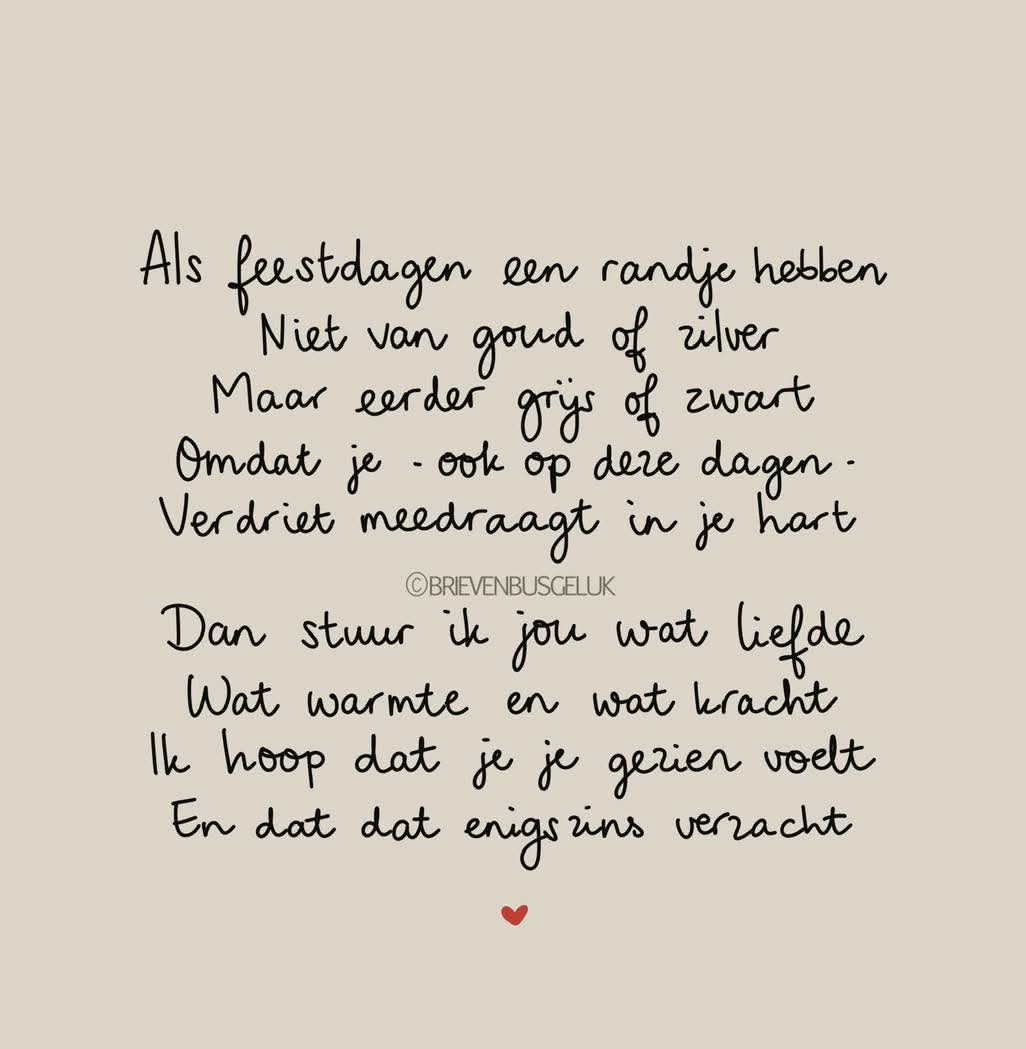 Als feestdagen een randje hebben
Niet van goud of zilver
Maar eerder grijs of zwart
Omdat je - ook op deze dagen -
Verdriet meedraagt in je hart
©BRIEVENBUSGELUK
Dan stuur ik jou wat liefde
Wat warmte en wat kracht
Ik hoop dat je je gezien voelt
En dat dat enigszins verzacht